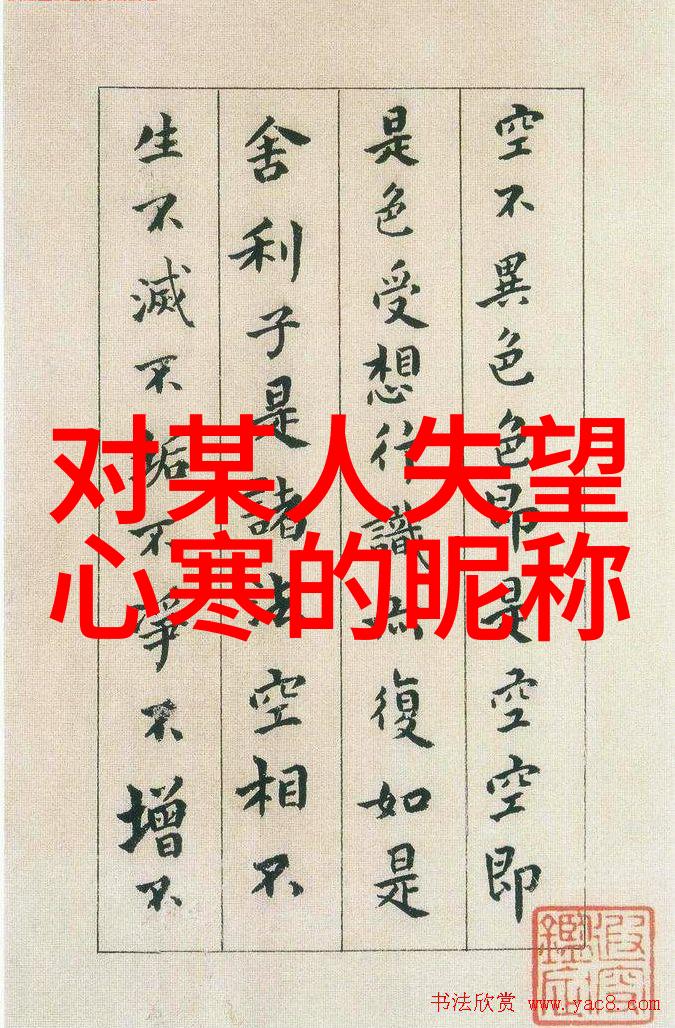 对某人失望
心寒的昵称
空不異色色即是空空即
是色受想行識亦復如是
舍利子是諸法空相不
生不滅不垢不淨不增不
书法欣赏 www.yac8.com